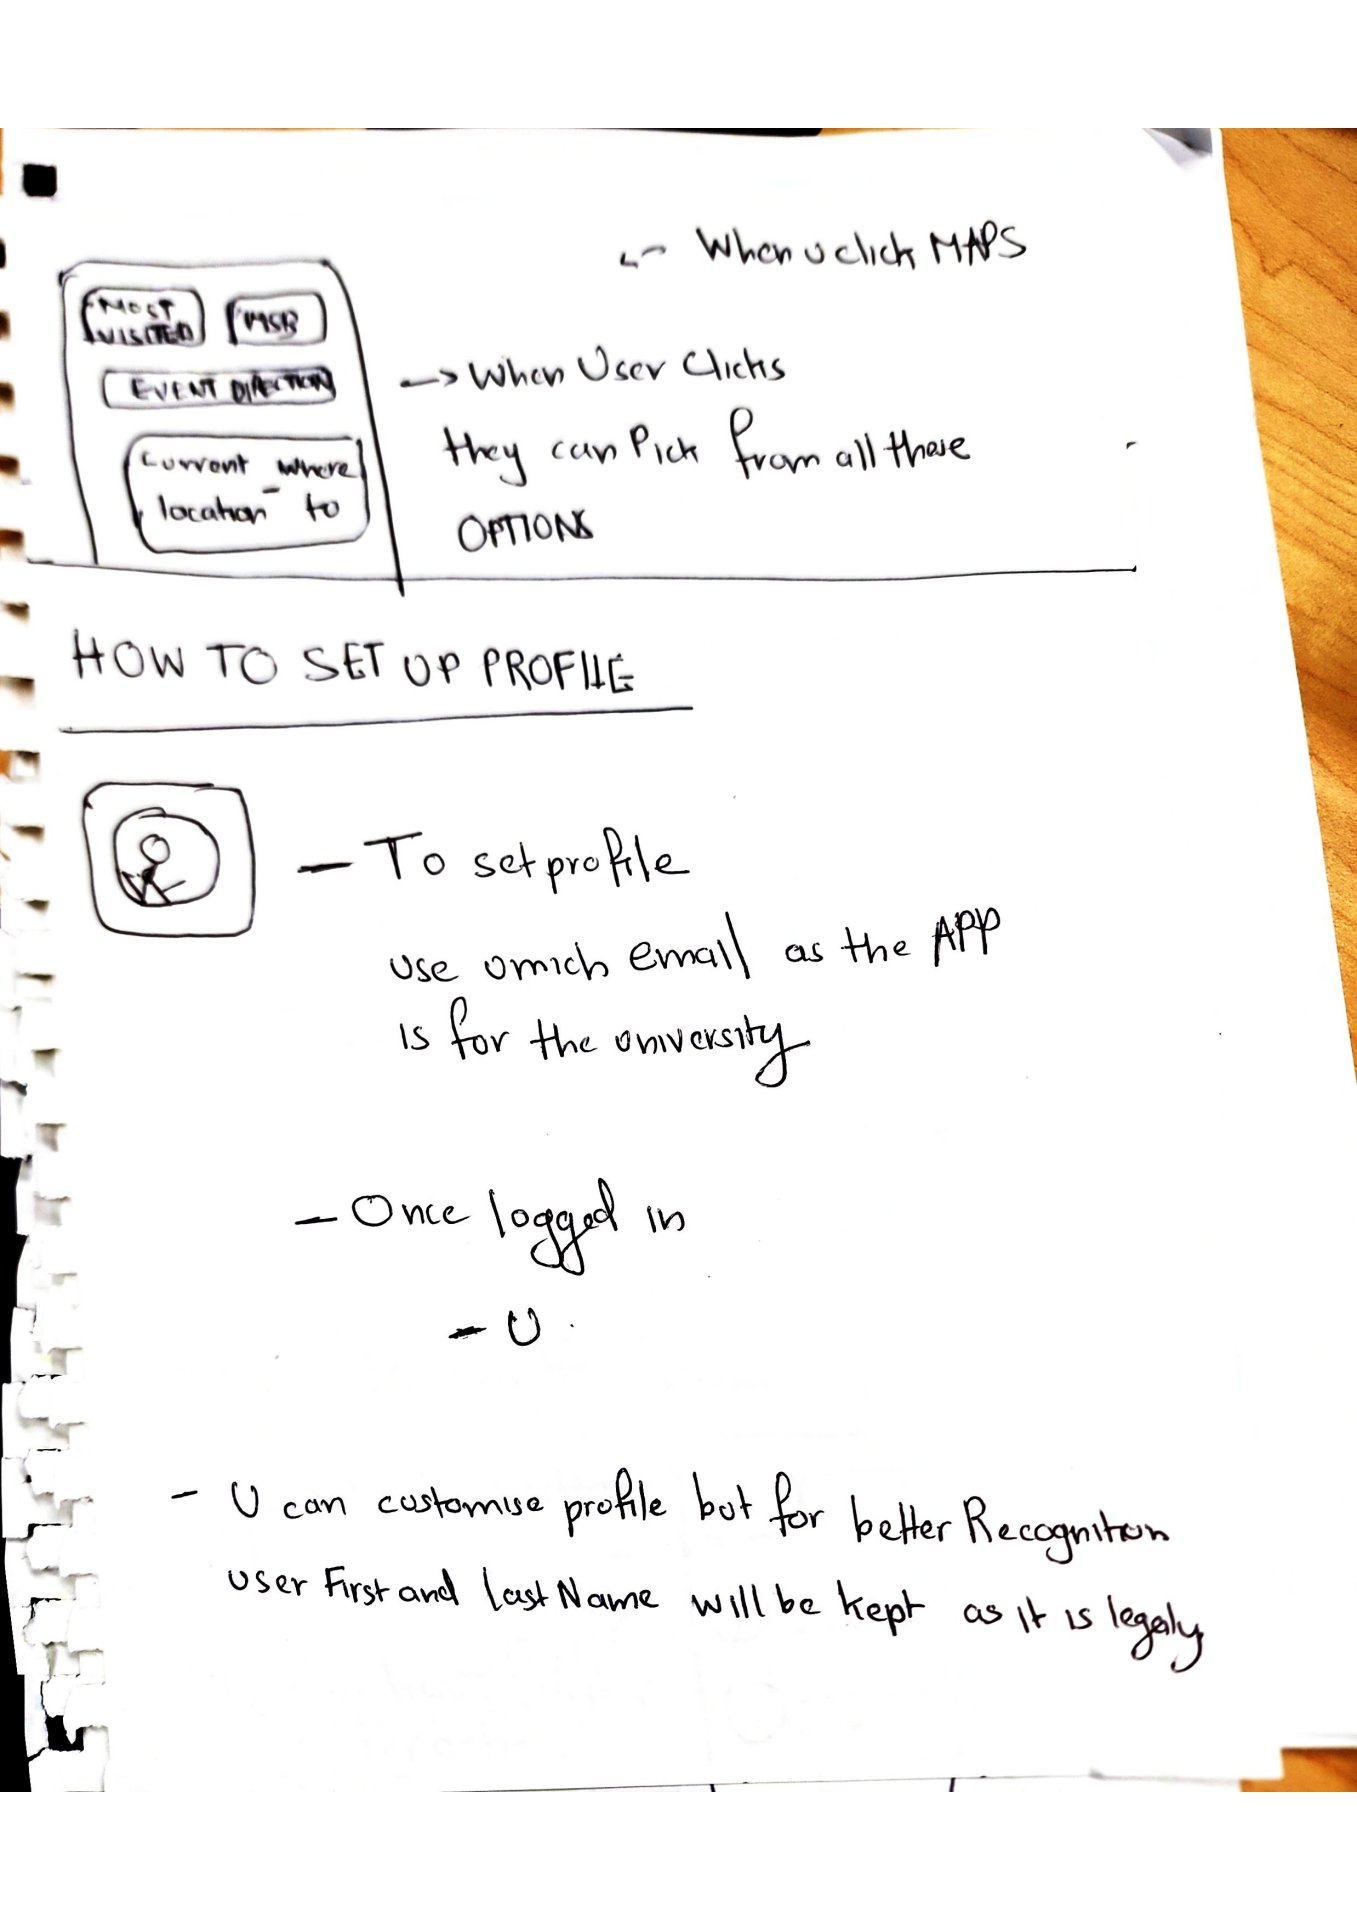 When u click MAPS
MOST
VISITED
MSB
EVENT DIRECTION
Current where
location - to
-> When User Clicks
they can Pick from all these
OPTIONS
HOW TO SET UP PROFILE
- To set profile
use umich email as the APP
is for the university
- Once logged in
- U
- U can customise profile but for better Recognition
user First and last Name will be kept as it is legaly